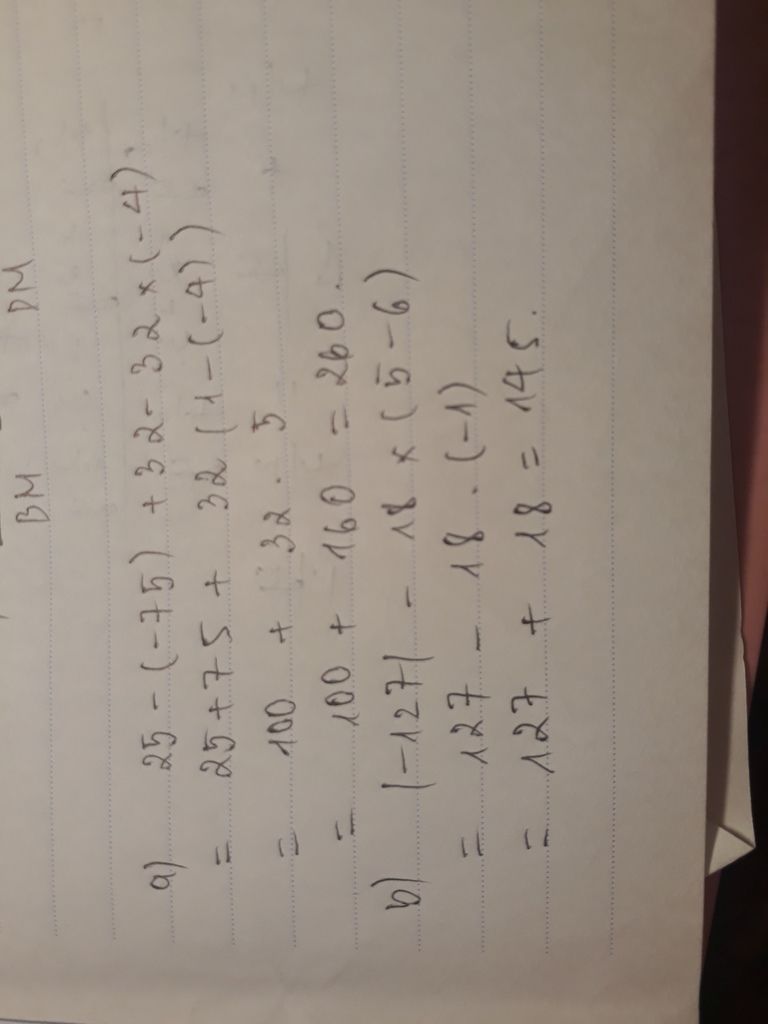 BM DM
a) 25 - (-75) + 32 - 32 × (-4).
= 25 + 75 + 32 (1 - (-4))
= 100 + 32 . 5
= 100 + 160 = 260.
b) |-127| - 18 × (5 - 6)
= 127 - 18 . (-1)
= 127 + 18 = 145.